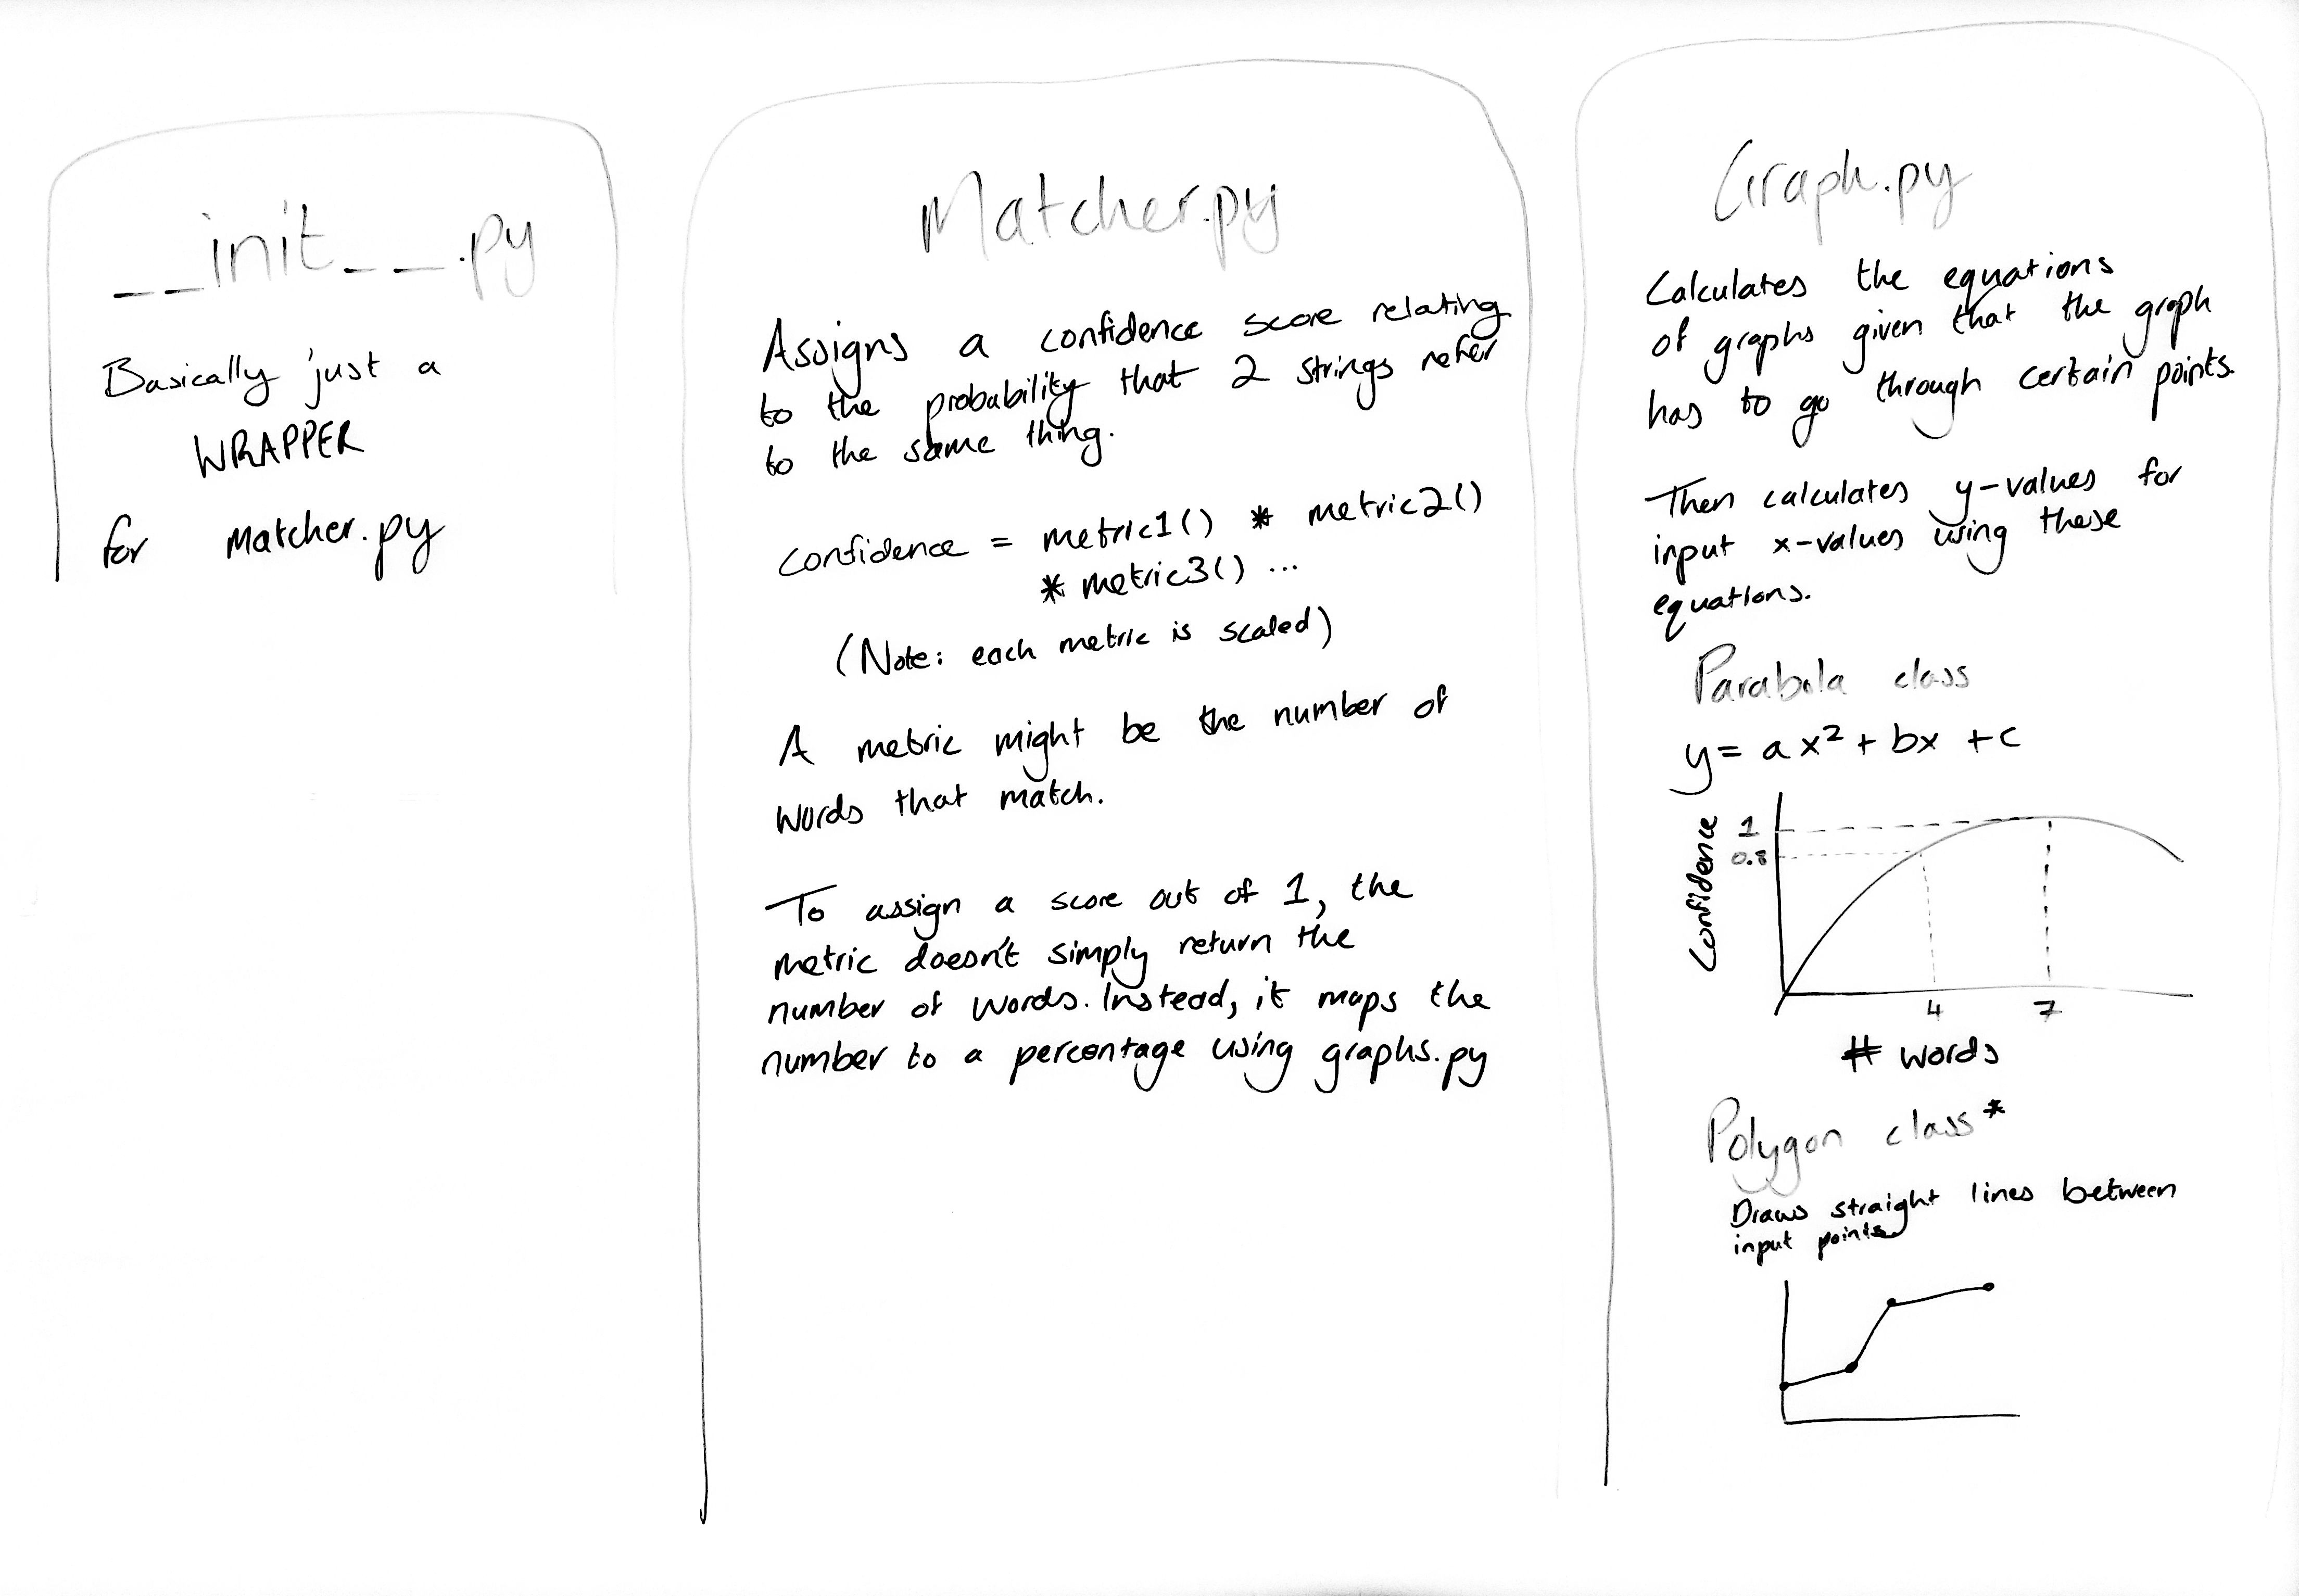 __init__.py
Basically just a
WRAPPER
for matcher.py
Matcher.py
Assigns a confidence score relating
to the probability that 2 strings refer
to the same thing.
confidence = metric1() * metric2()
* metric3() ...
(Note: each metric is scaled)
A metric might be the number of
words that match.
To assign a score out of 1, the
metric doesn't simply return the
number of words. Instead, it maps the
number to a percentage using graphs.py
Graph.py
Calculates the equations
of graphs given that the graph
has to go through certain points.
Then calculates y-values for
input x-values using these
equations.
Parabola class
y = ax² + bx + c
Confidence
1
0.8
4 7
# words
Polygon class*
Draws straight lines between
input points